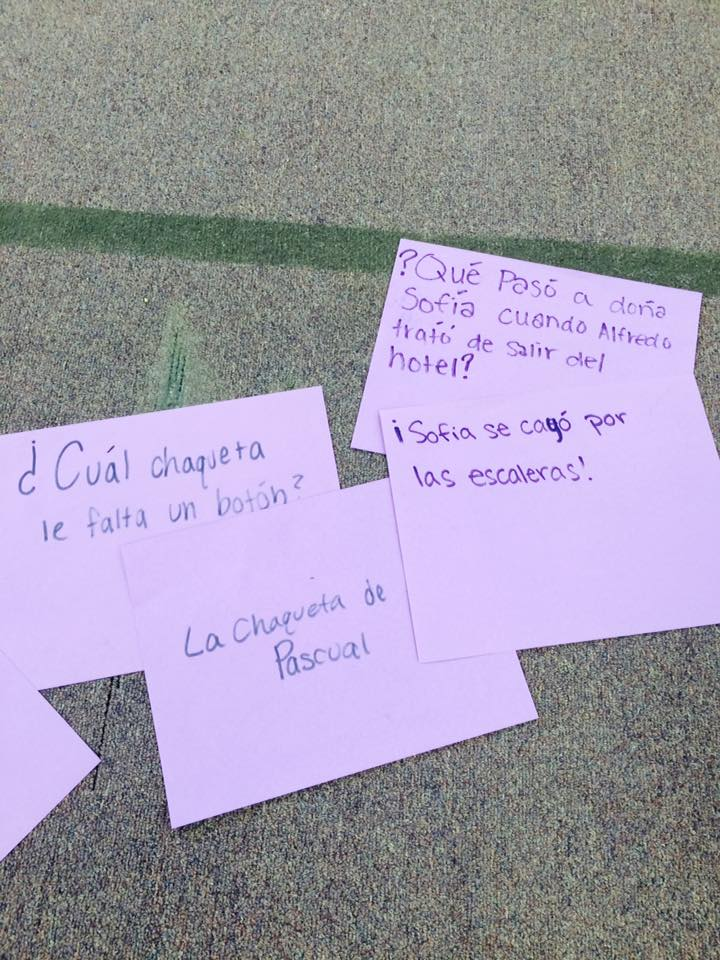 ?Qué Pasó a doña
Sofía cuando Alfredo
trató de salir del
hotel?
¡Sofia se cayó por
las escaleras!
¿Cuál chaqueta
le falta un botón?
La Chaqueta de
Pascual